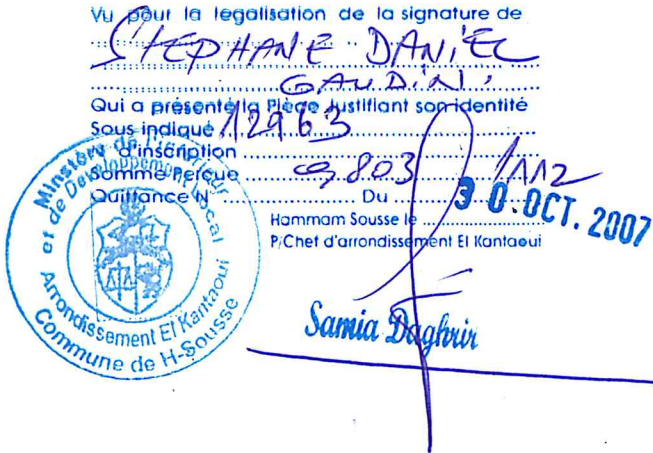 Vu pour la legalisation de la signature de
STEPHANE DANIEL
GAUDIN
Qui a présenté la Pièce Justifiant son identité
Sous indiqué 12963
N° d'inscription
Somme Perçue 803 /112
Quittance N° Du 30. OCT. 2007
Hammam Sousse le
P/Chef d'arrondissement El Kantaoui
Samia Daghrir
Ministère de l'Intérieur
et de Développement Local
Arrondissement El Kantaoui
Commune de H-Sousse